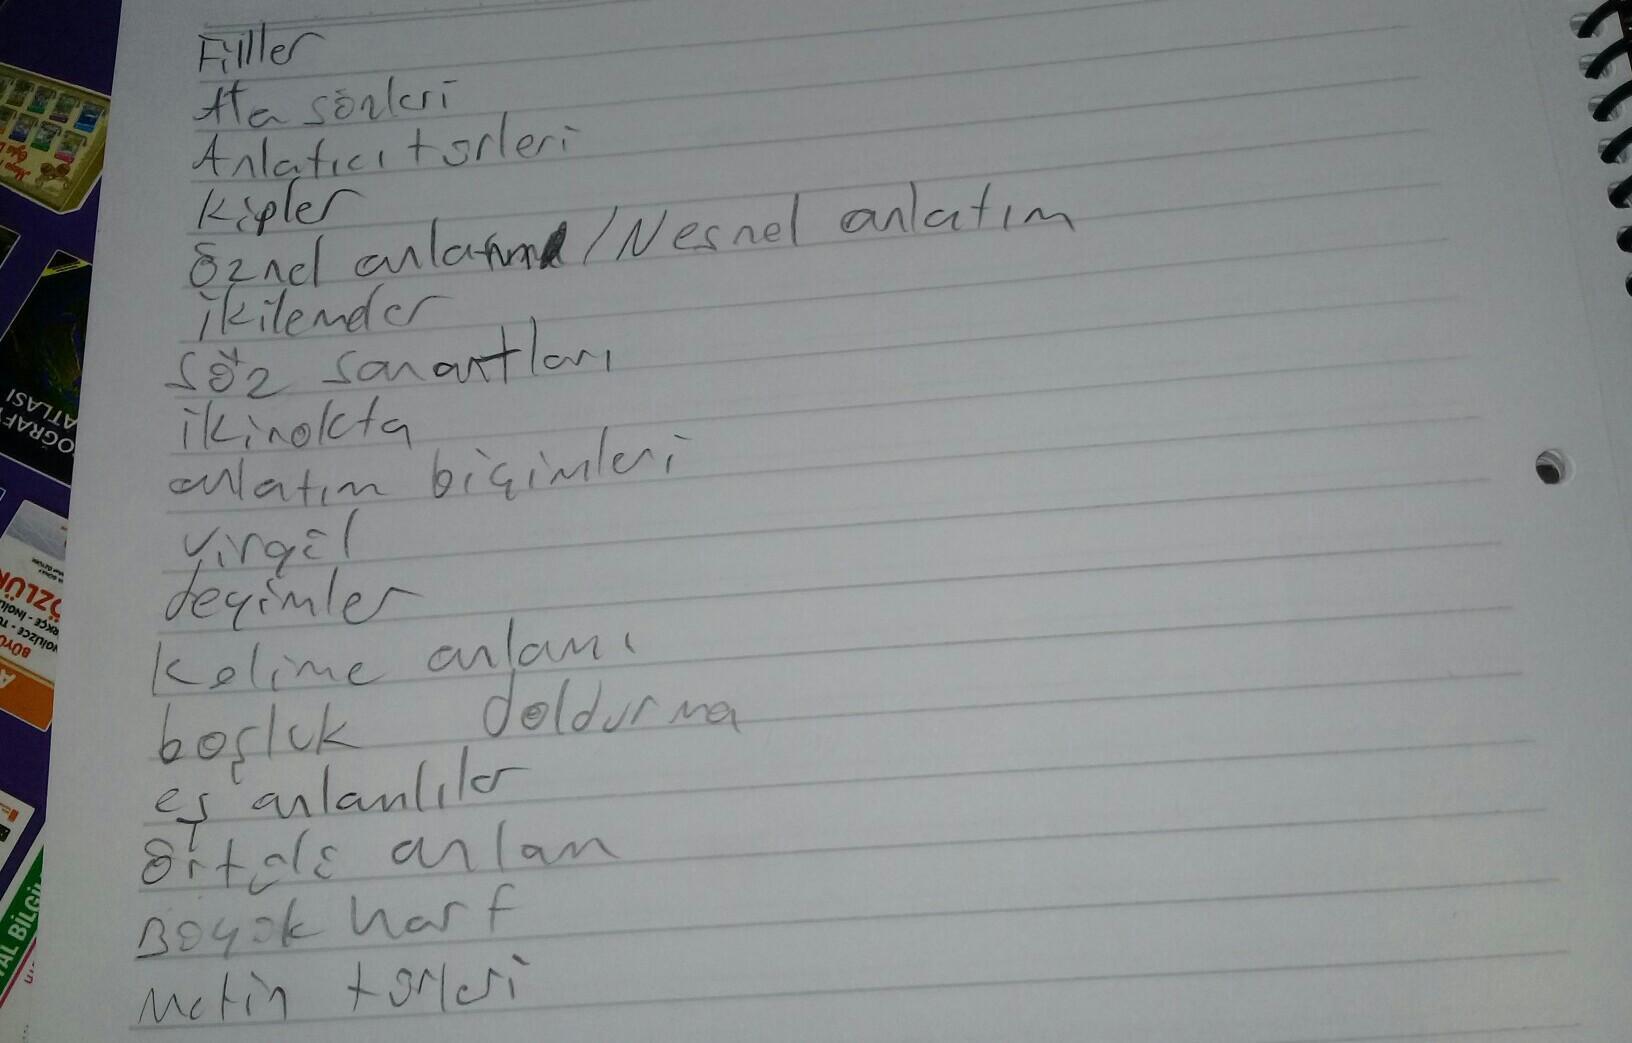 Filler
Ata sözleri
Anlatıcı türleri
Kipler
Öznel anlatım / Nesnel anlatım
ikilemeler
Söz sanatları
iki nokta
anlatım biçimleri
virgül
deyimler
Kelime anlamı
boşluk doldurma
eş anlamlılar
örtülü anlam
Büyük harf
Metin türleri
ATLASI